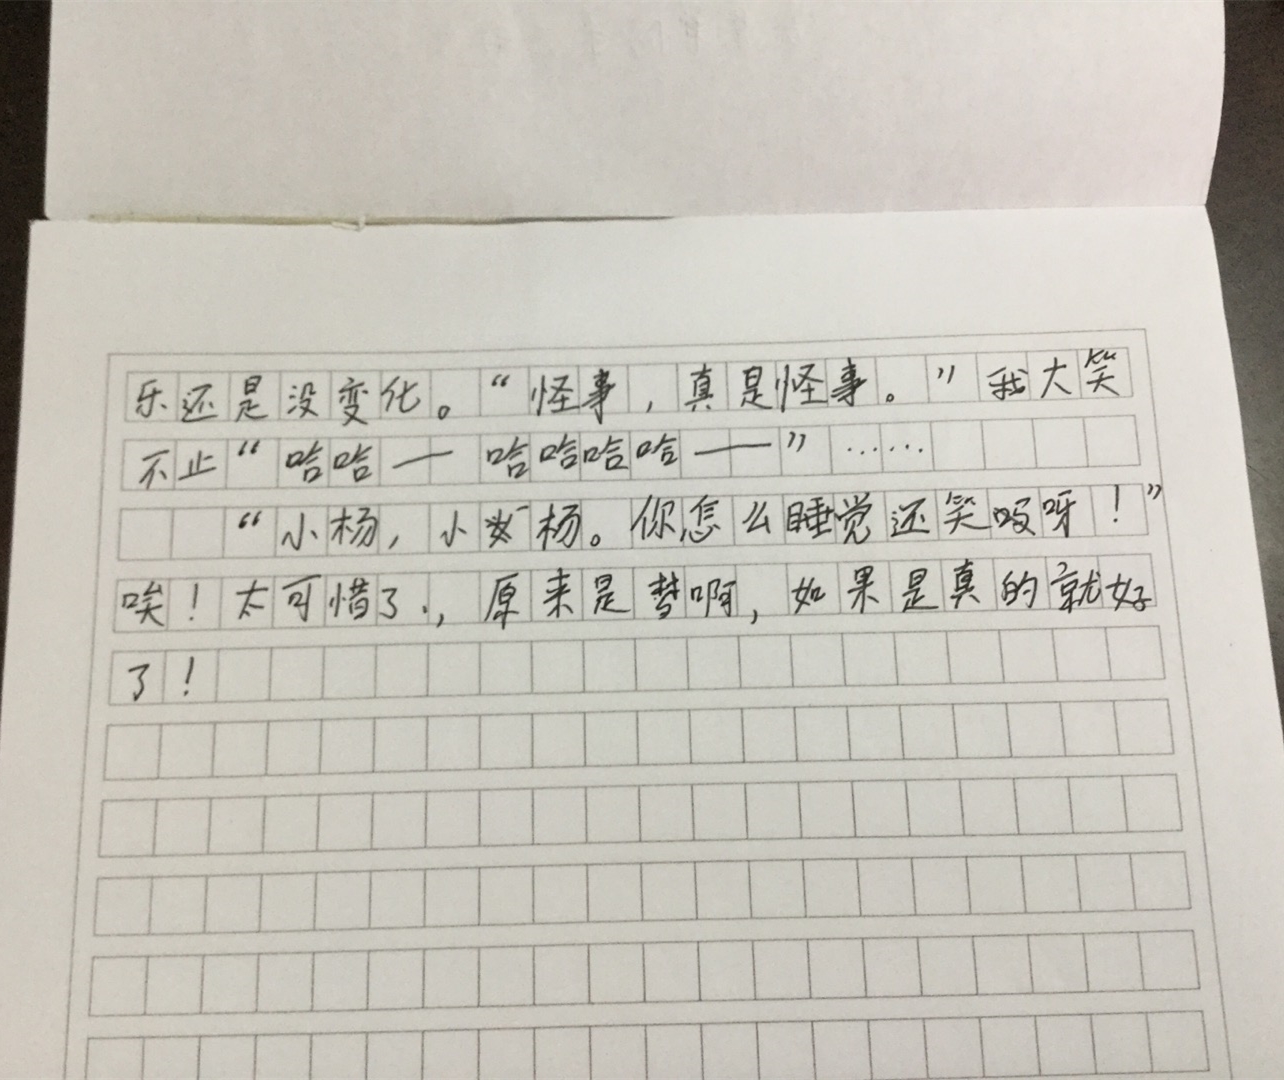 乐还是没变化。“怪事，真是怪事。”我大笑
不止“哈哈——哈哈哈哈——”……
“小杨，小杨。你怎么睡觉还笑呀！”
唉！太可惜了.，原来是梦啊，如果是真的就好
了！